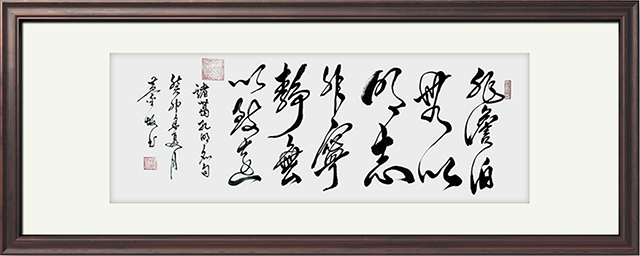 非澹泊
無以
明志
非寧
靜無
以致遠
諸葛孔明名句
癸卯年夏月